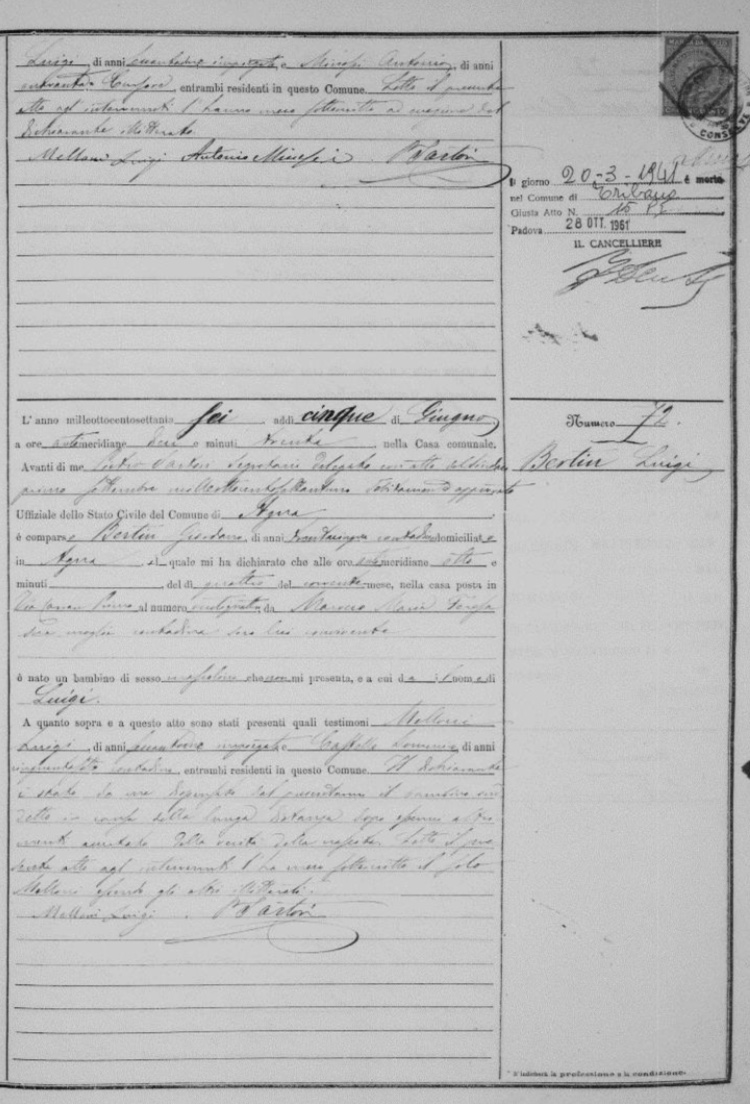 Luigi, di anni quarantadue impiegato e Minesi Antonio, di anni
quaranta Cursore, entrambi residenti in questo Comune. Letto il presente
atto agl' intervenuti l'hanno meco sottoscritto ad eccezione del
dichiarante illetterato.
Melloni Luigi Antonio Minesi P Sartori
CONSELVE
Il giorno 20-3-1941 è morto
nel Comune di Tribano
Giusta Atto N. 15 P I
Padova 28 OTT. 1961
IL CANCELLIERE
L'anno milleottocentosettanta sei addì cinque di Giugno
a ore antimeridiane dieci e minuti trenta, nella Casa comunale.
Avanti di me Pietro Sartori Segretario Delegato con atto del Sindaco
primo settembre milleottocentosettantuno debitamente approvato
Uffiziale dello Stato Civile del Comune di Agna
è comparso Bertin Giordano, di anni trentacinque contadino domiciliato
in Agna, il quale mi ha dichiarato che alle ore antimeridiane otto e
minuti del dì quattro del corrente mese, nella casa posta in
Via al numero da Maria Teresa
sua moglie contadina seco lui convivente
è nato un bambino di sesso mascolino che non mi presenta, e a cui dà il nome di
Luigi.
A quanto sopra e a questo atto sono stati presenti quali testimoni Melloni
Luigi, di anni quarantadue impiegato e Castello Domenico, di anni
cinquantotto contadino, entrambi residenti in questo Comune. Il dichiarante
è stato da me dispensato dal presentarmi il bambino sud
detto in causa della lunga distanza dopo essermi altri
menti accertato della verità della nascita. Letto il pre
sente atto agl' intervenuti l'ha meco sottoscritto il solo
Melloni essendo gli altri illetterati.
Melloni Luigi P Sartori
Numero 72.
Bertin Luigi
* S'indicherà la professione o la condizione.